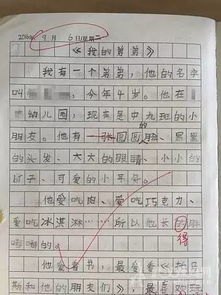 9月6日星期二
《我的弟弟》
我有一个弟弟，他的名字
叫，今年4岁。他在
幼儿园，现在是中九班的小
朋友。他有一张圆圆的脸、黑黑
的头发、大大的眼睛、小小的
可爱的小耳朵。
他爱吃肉、爱吃巧克力、
爱吃冰淇淋……所以他长得
嘟嘟的。
得
他爱看书，最爱看《托马
斯和他的朋友们》，最